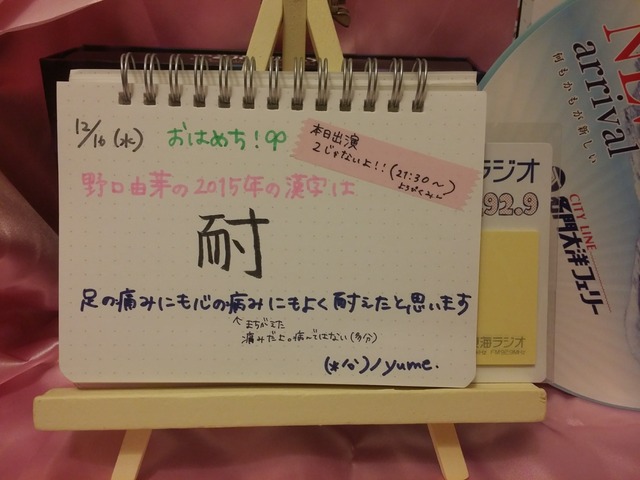 12/16(水)
おはめち！
本日出演
2じゃないよ!!(21:30〜)
野口由芽の2015年の漢字は
耐
足の痛みにも心の病みにもよく耐えたと思います
↑まちがえた
痛みだよ。病んではない(多分)
yume.
NEW
arrival
何もかもが新しい
ラジオ
92.9
CITY LINE
名門大洋フェリー
東海ラジオ